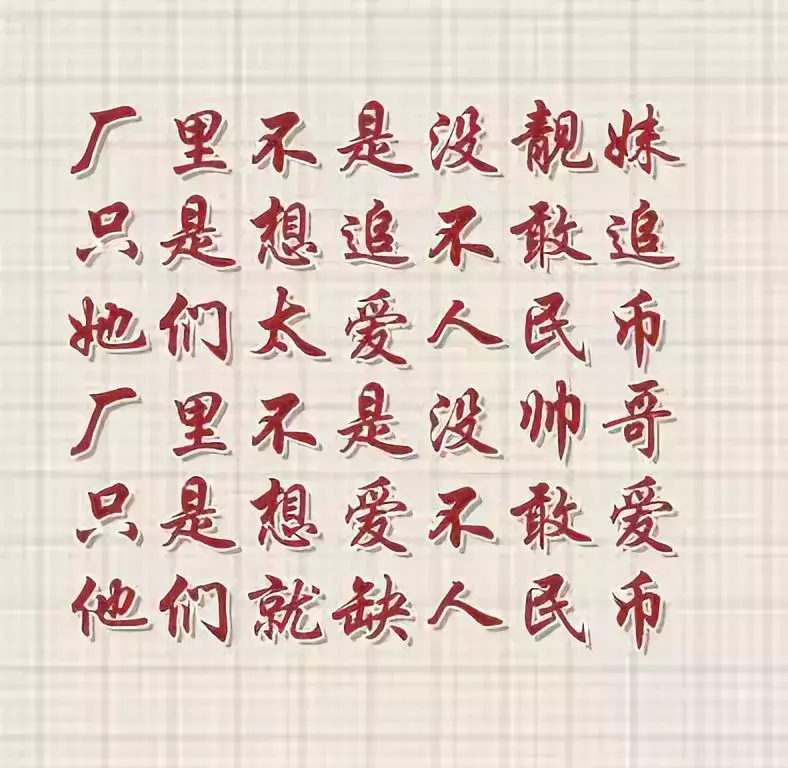 厂里不是没靓妹
只是想追不敢追
她们太爱人民币
厂里不是没帅哥
只是想爱不敢爱
他们就缺人民币